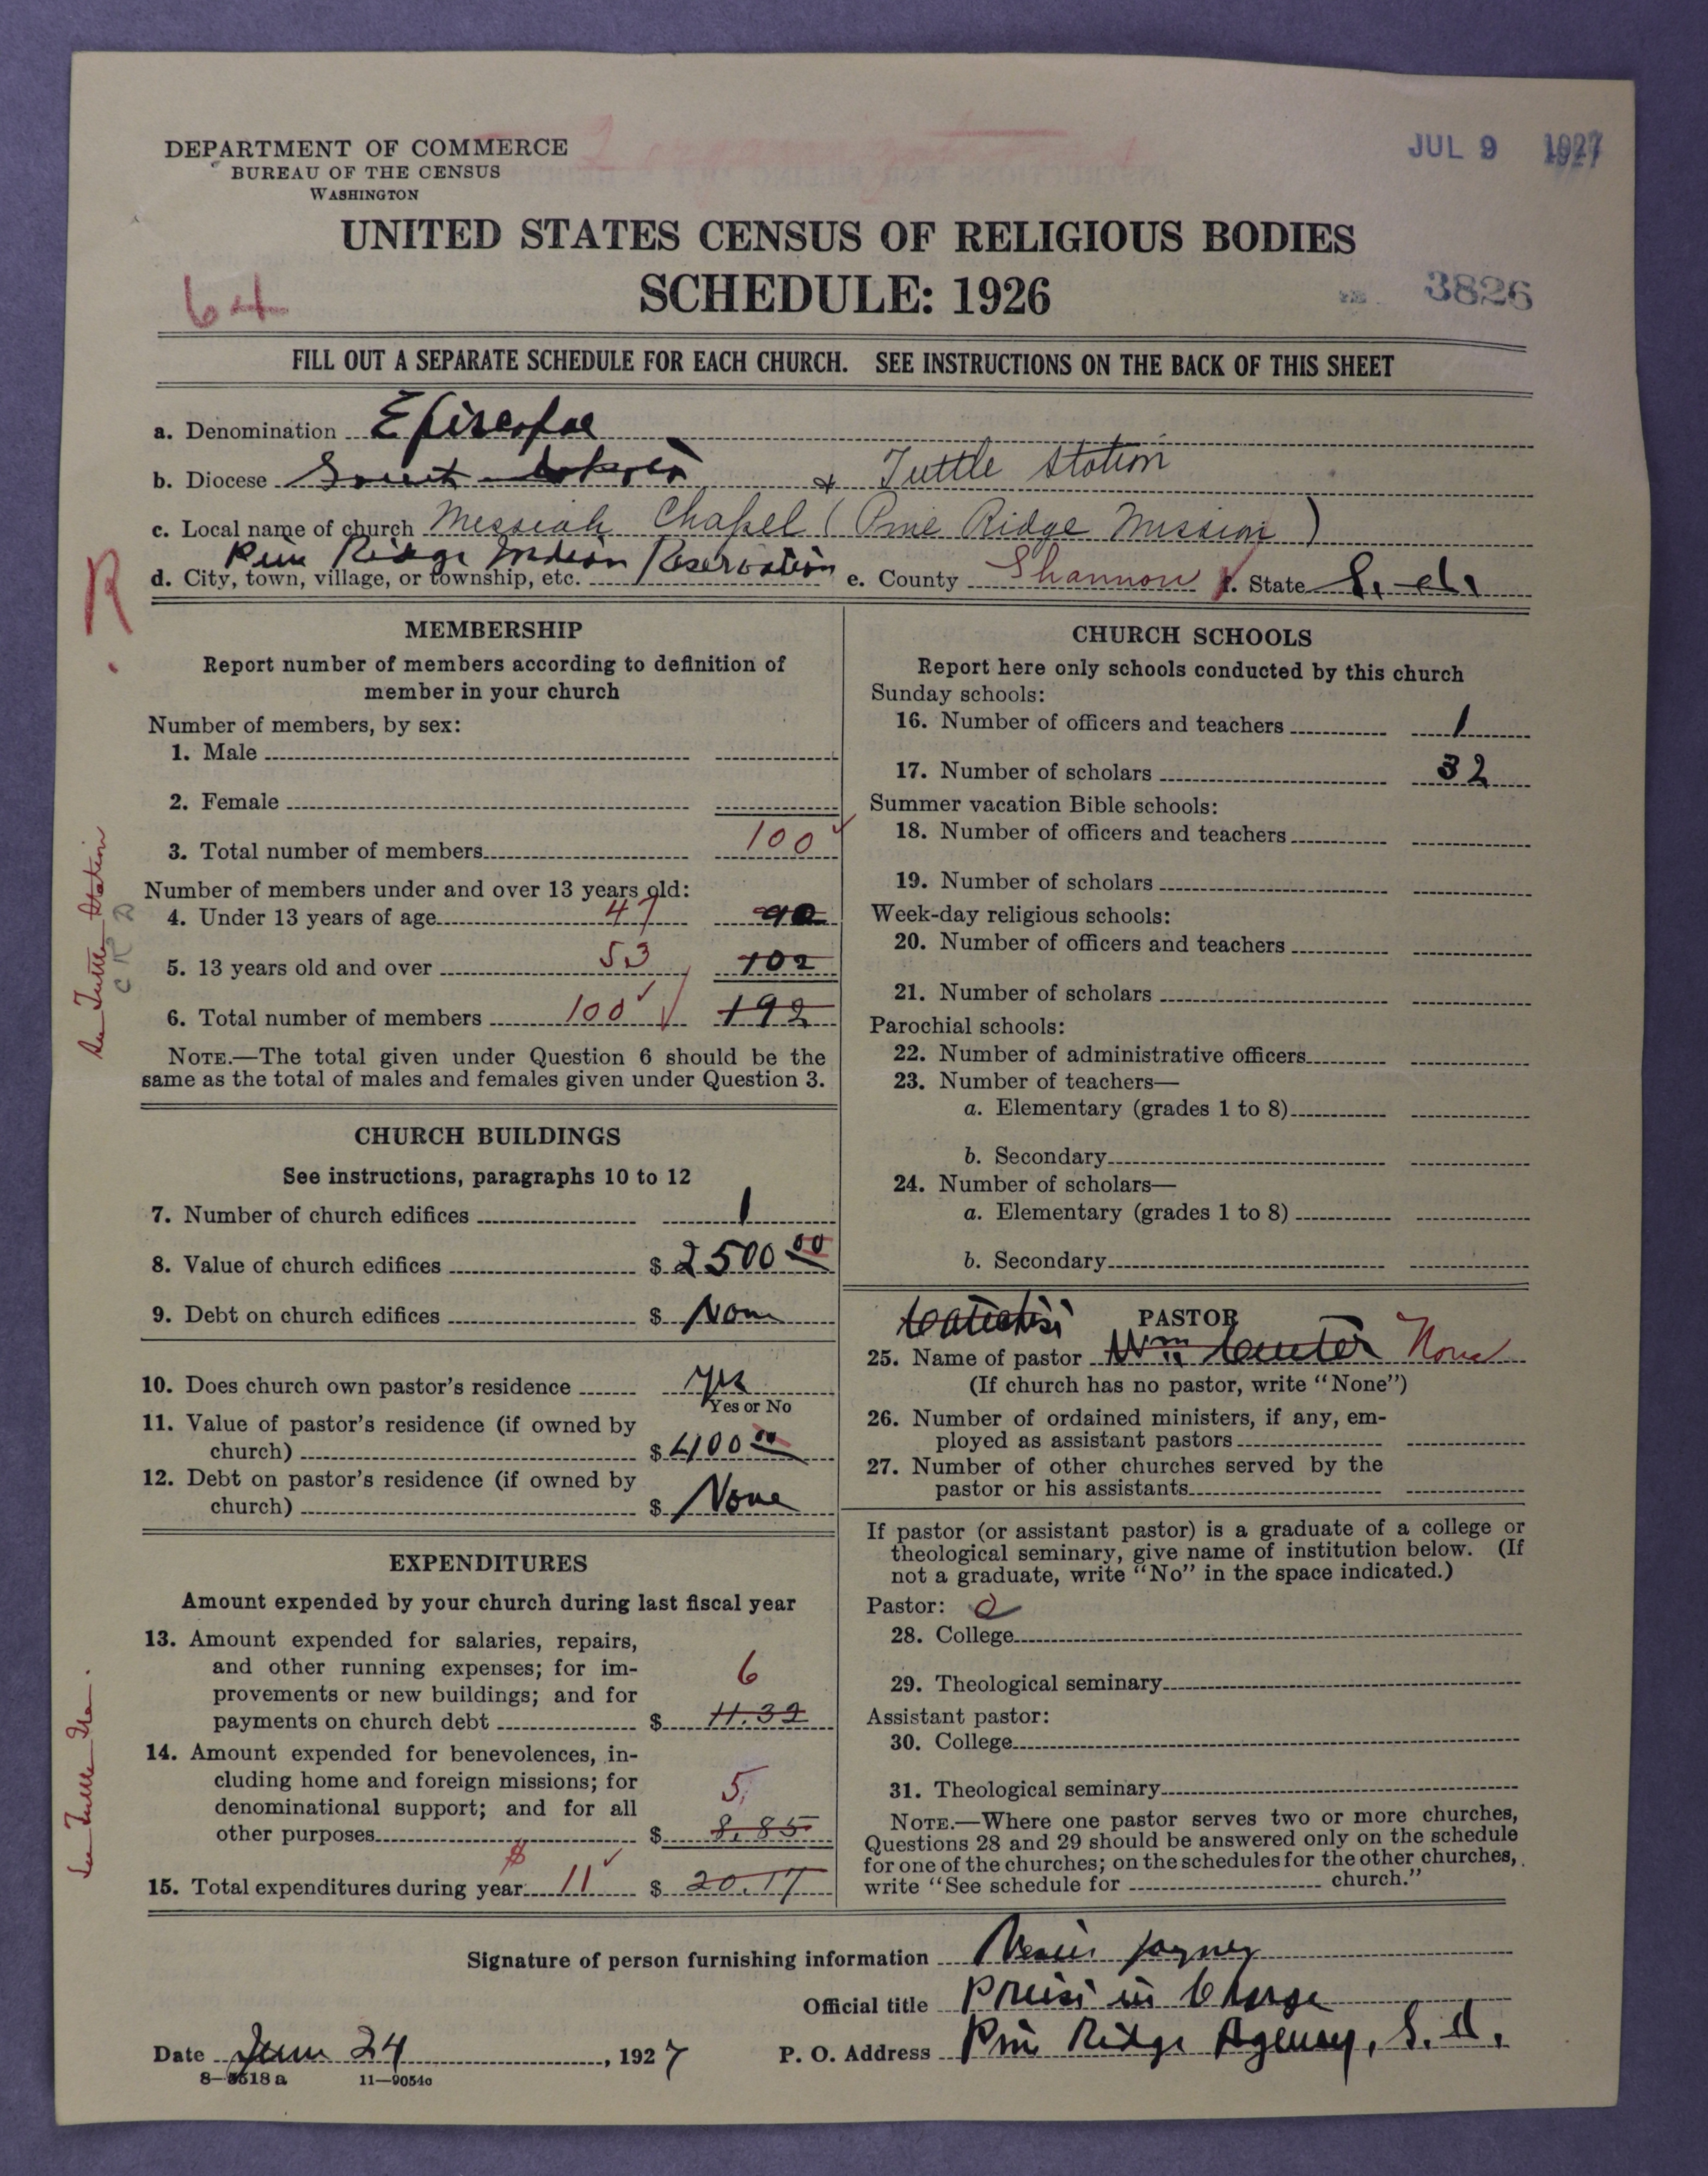 DEPARTMENT OF COMMERCE
BUREAU OF THE CENSUS
WASHINGTON
JUL 9 1927
UNITED STATES CENSUS OF RELIGIOUS BODIES
SCHEDULE: 1926
64
3826
FILL OUT A SEPARATE SCHEDULE FOR EACH CHURCH. SEE INSTRUCTIONS ON THE BACK OF THIS SHEET
a. Denomination Episcopal
b. Diocese South Dakota & Tuttle Station
c. Local name of church Messiah Chapel (Pine Ridge Mission)
d. City, town, village, or township, etc. Pine Ridge Indian Reservation e. County Shannon f. State S. d.
R
MEMBERSHIP
Report number of members according to definition of
member in your church
Number of members, by sex:
1. Male
2. Female
3. Total number of members 100
Number of members under and over 13 years old:
4. Under 13 years of age 47 90
5. 13 years old and over 53 102
6. Total number of members 100 192
NOTE.—The total given under Question 6 should be the
same as the total of males and females given under Question 3.
See Tuttle Station
CHURCH BUILDINGS
See instructions, paragraphs 10 to 12
7. Number of church edifices 1
8. Value of church edifices $ 2500 00
9. Debt on church edifices $ None
10. Does church own pastor's residence yes
Yes or No
11. Value of pastor's residence (if owned by
church) $ 400 00
12. Debt on pastor's residence (if owned by
church) $ None
EXPENDITURES
Amount expended by your church during last fiscal year
13. Amount expended for salaries, repairs,
and other running expenses; for im-
provements or new buildings; and for 6
payments on church debt $ 11.32
14. Amount expended for benevolences, in-
cluding home and foreign missions; for
denominational support; and for all 5
other purposes $ 8.85
15. Total expenditures during year $ 11 $ 20.17
See Tuttle Sta.
CHURCH SCHOOLS
Report here only schools conducted by this church
Sunday schools:
16. Number of officers and teachers 1
17. Number of scholars 32
Summer vacation Bible schools:
18. Number of officers and teachers
19. Number of scholars
Week-day religious schools:
20. Number of officers and teachers
21. Number of scholars
Parochial schools:
22. Number of administrative officers
23. Number of teachers—
a. Elementary (grades 1 to 8)
b. Secondary
24. Number of scholars—
a. Elementary (grades 1 to 8)
b. Secondary
Catechist PASTOR
25. Name of pastor Wm None
(If church has no pastor, write "None")
26. Number of ordained ministers, if any, em-
ployed as assistant pastors
27. Number of other churches served by the
pastor or his assistants
If pastor (or assistant pastor) is a graduate of a college or
theological seminary, give name of institution below. (If
not a graduate, write "No" in the space indicated.)
Pastor: 0
28. College
29. Theological seminary
Assistant pastor:
30. College
31. Theological seminary
NOTE.—Where one pastor serves two or more churches,
Questions 28 and 29 should be answered only on the schedule
for one of the churches; on the schedules for the other churches,
write "See schedule for church."
Signature of person furnishing information
Official title Priest in Charge
Date June 24, 1927 P. O. Address Pine Ridge Agency, S. D.
8—5518a 11—9054c